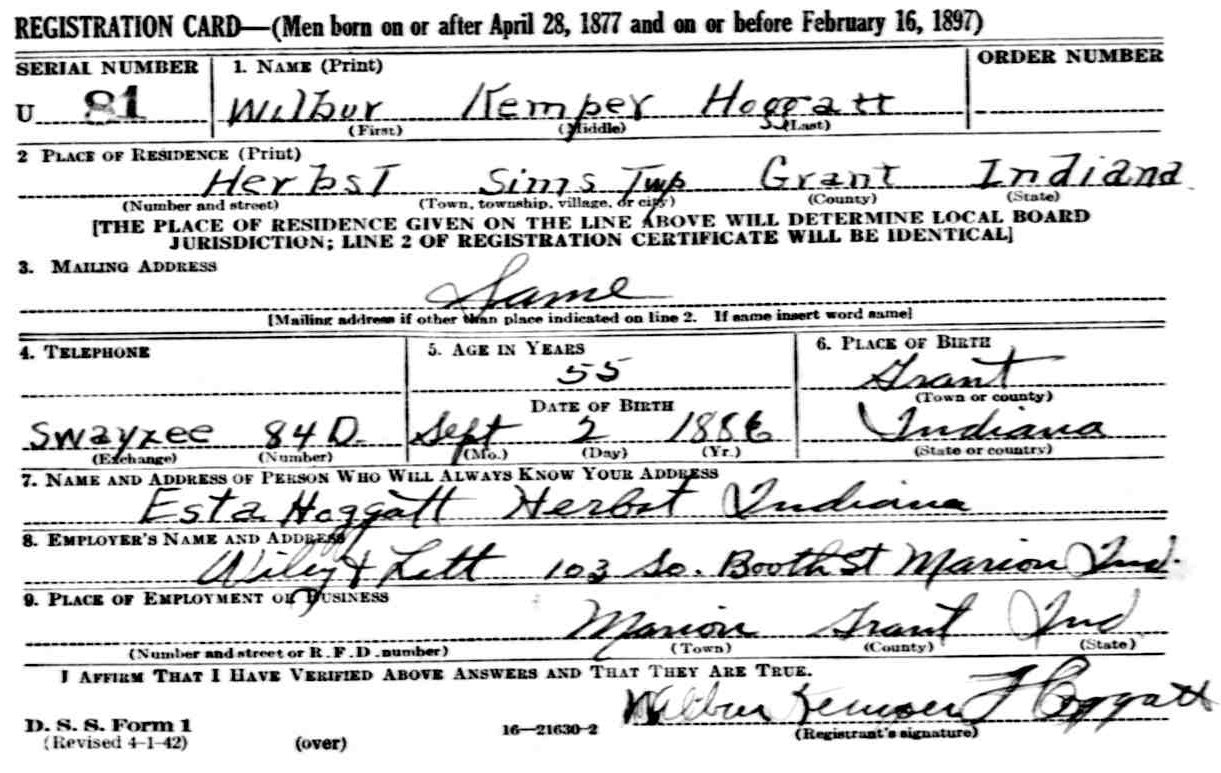 REGISTRATION CARD—(Men born on or after April 28, 1877 and on or before February 16, 1897)
SERIAL NUMBER 1. NAME (Print) ORDER NUMBER
U 81 Wilbur Kemper Hoggatt
(First) (Middle) (Last)
2 PLACE OF RESIDENCE (Print)
Herbst Sims Twp Grant Indiana
(Number and street) (Town, township, village, or city) (County) (State)
[THE PLACE OF RESIDENCE GIVEN ON THE LINE ABOVE WILL DETERMINE LOCAL BOARD
JURISDICTION; LINE 2 OF REGISTRATION CERTIFICATE WILL BE IDENTICAL]
3. MAILING ADDRESS
Same
[Mailing address if other than place indicated on line 2. If same insert word same]
4. TELEPHONE 5. AGE IN YEARS 6. PLACE OF BIRTH
55 Grant
(Town or county)
DATE OF BIRTH
Swayzee 84 D. Sept 2 1886 Indiana
(Exchange) (Number) (Mo.) (Day) (Yr.) (State or country)
7. NAME AND ADDRESS OF PERSON WHO WILL ALWAYS KNOW YOUR ADDRESS
Esta Hoggatt Herbst Indiana
8. EMPLOYER'S NAME AND ADDRESS
Wiley & Lett 103 So. Booth St Marion Ind.
9. PLACE OF EMPLOYMENT OR BUSINESS
Marion Grant Ind
(Number and street or R. F. D. number) (Town) (County) (State)
I AFFIRM THAT I HAVE VERIFIED ABOVE ANSWERS AND THAT THEY ARE TRUE.
Wilbur Kemper Hoggatt
D. S. S. Form 1 16—21630-2 (Registrant's signature)
(Revised 4-1-42) (over)